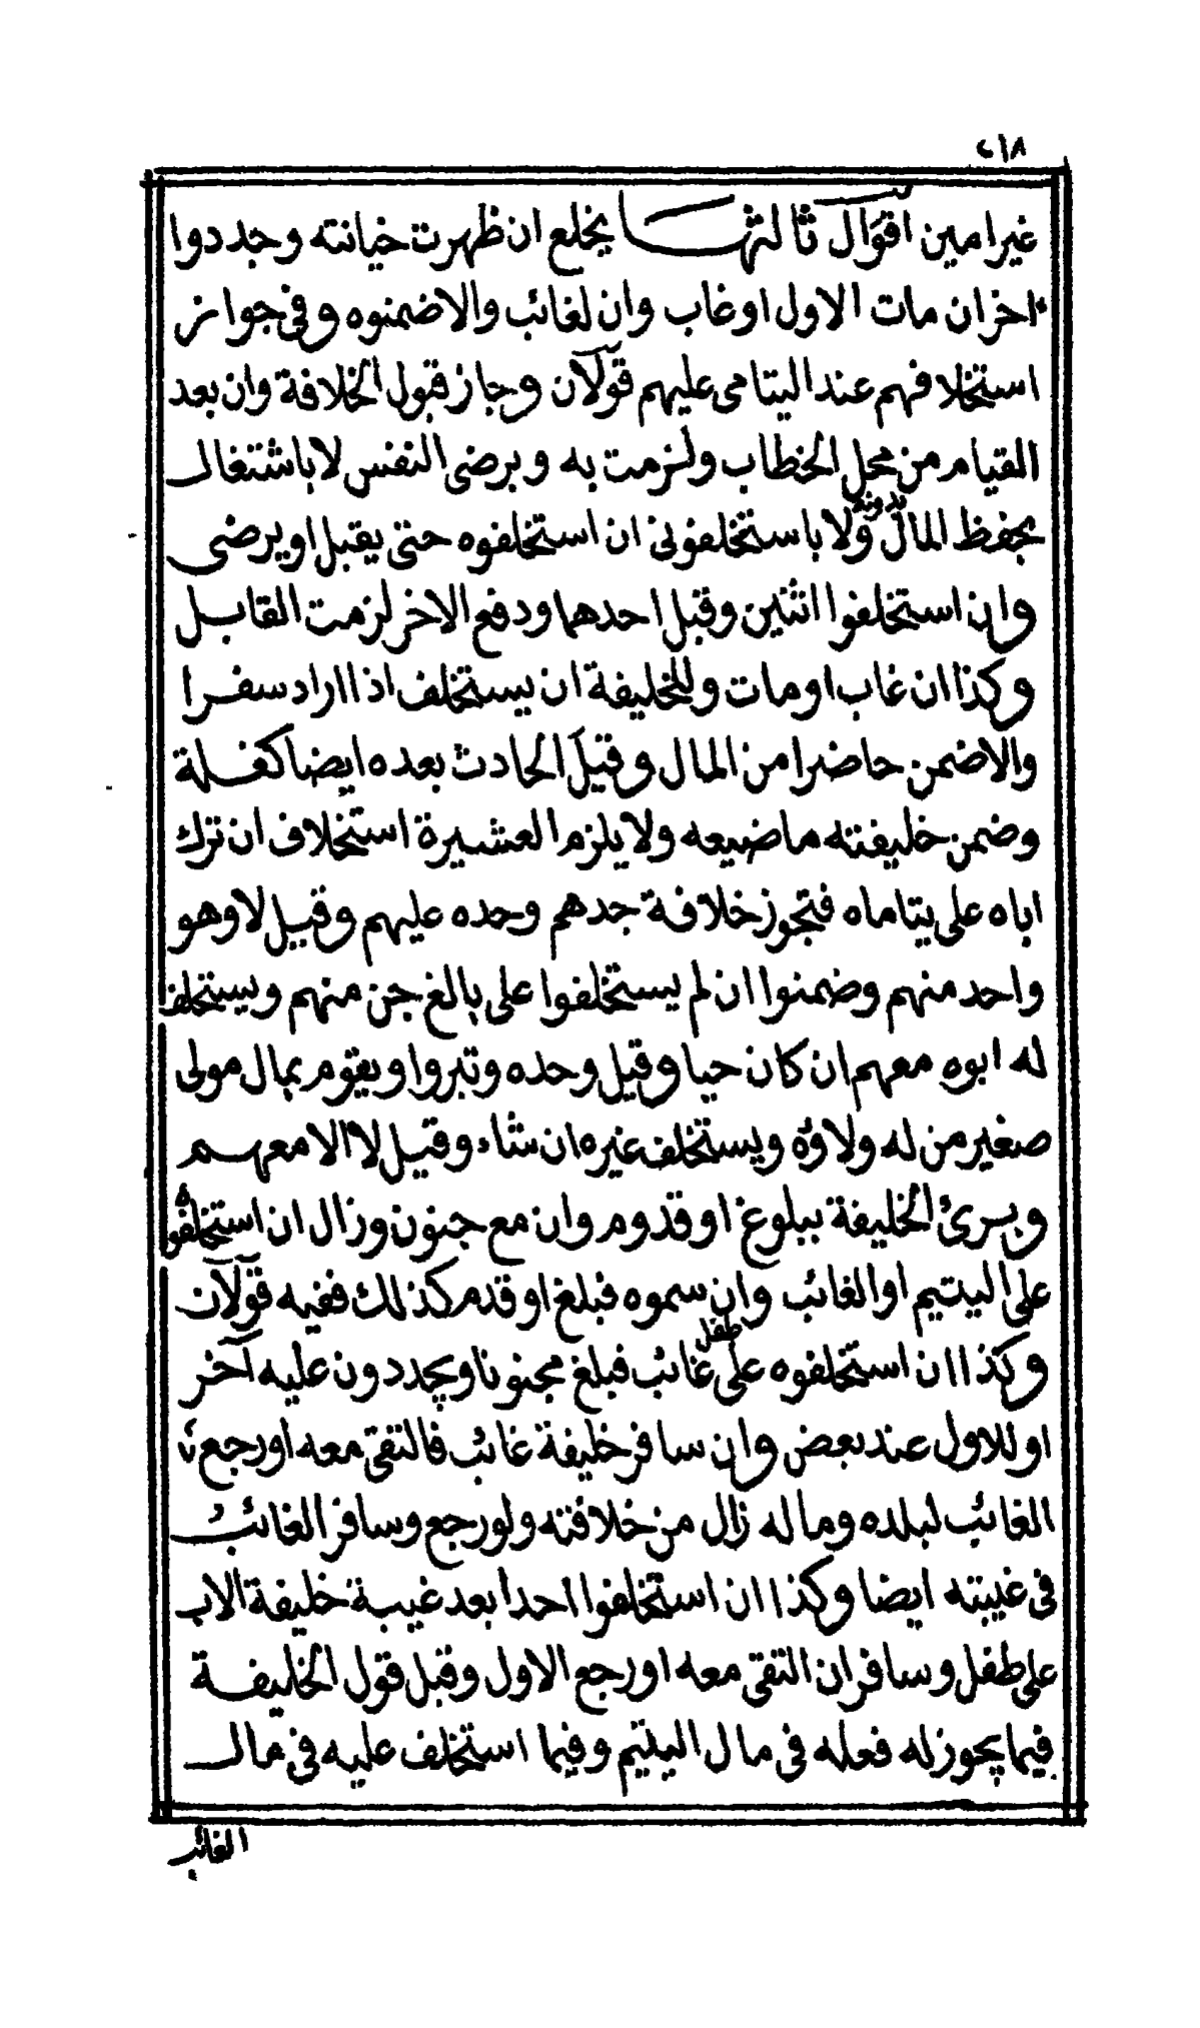 ٢١٨
غير امين اقوال ثالثها يخلع ان ظهرت خيانته وجددوا
ءاخر ان مات الاول او غاب وان لغائب والا ضمنوه وفي جواز
استخلافهم عند اليتامى عليهم قولان وجاز قبول الخلافة وان بعد
القيام من محل الخطاب ولزمت به وبرضى النفس لا باشتغال
بحفظ المال بدونه ولا باستخلفوني ان استخلفوه حتى يقبل او يرضى
وان استخلفوا اثنين وقبل احدهما ودفع الاخر لزمت القابل
وكذا ان غاب او مات وللخليفة ان يستخلف اذا اراد سفرا
والا ضمن حاضرا من المال وقيل الحادث بعده ايضا كغلة
وضمن خليفته ما ضيعه ولا يلزم العشيرة استخلاف ان ترك
اباه على يتاماه فتجوز خلافة جدهم وحده عليهم وقيل لا وهو
واحد منهم وضمنوا ان لم يستخلفوا على بالغ جن منهم ويستخلف
له ابوه معهم ان كان حيا وقيل وحده وتبروا ويقوم بمال مولى
صغير من له ولاؤه ويستخلف غيره ان شاء وقيل لا الا معهم
وبرئ الخليفة ببلوغ او قدوم وان مع جنون وزال ان استخلفوه
على اليتيم او الغائب وان سموه فبلغ او قدم كذلك ففيه قولان
وكذا ان استخلفوه على طفل غائب فبلغ مجنونا ويجددون عليه آخر
او للاول عند بعض وان سافر خليفة غائب فالتقى معه او رجع
الغائب لبلده وماله زال من خلافته ولو رجع وسافر الغائب
في غيبته ايضا وكذا ان استخلفوا احدا بعد غيبة خليفة الاب
على طفل وسافر ان التقى معه او رجع الاول وقبل قول الخليفة
فيما يجوز له فعله في مال اليتيم وفيما استخلف عليه في مال
الغائب